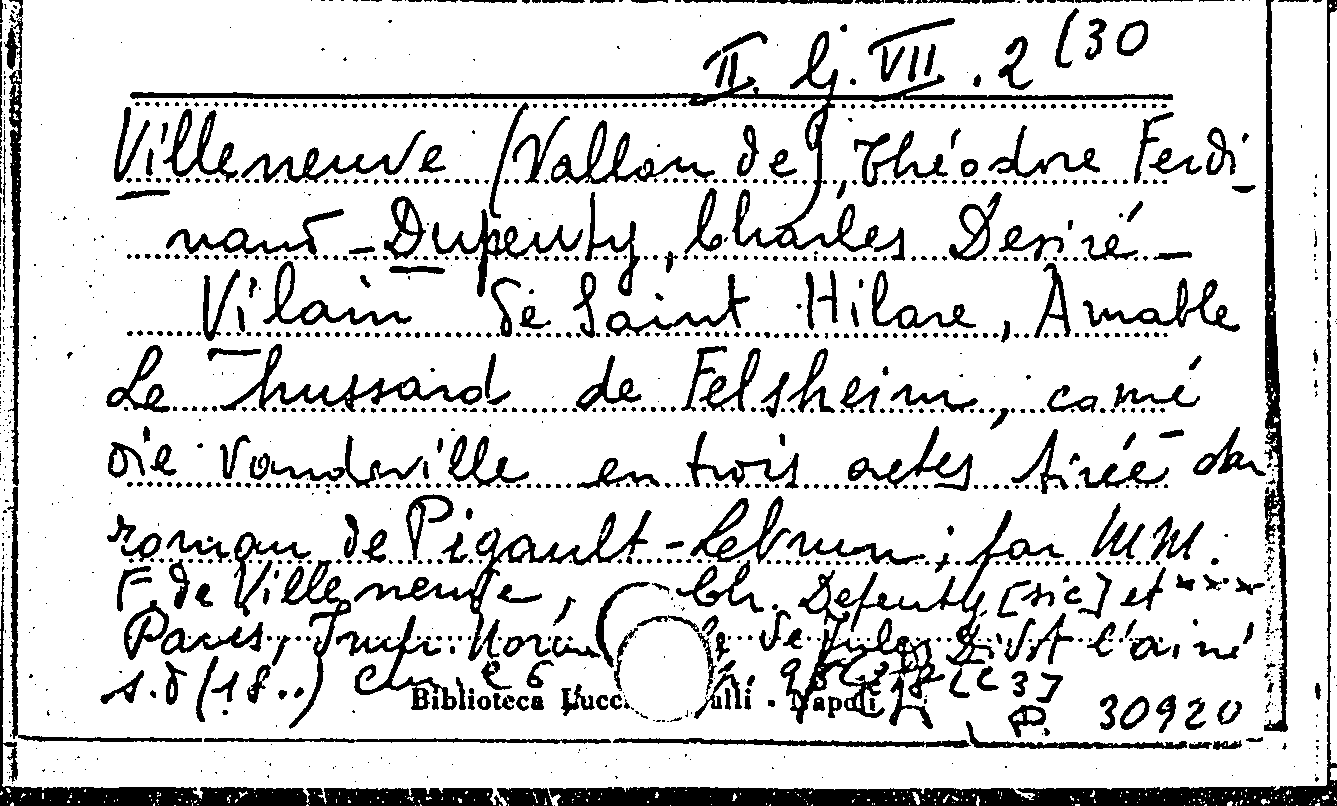 II. Lj. VII. 2 (30
Villeneuve (Vallou de), Théodore Ferdi-
nand - Dupeuty, Charles Desiré -
Vilain de Saint Hilare, Amable
Le hussard de Felsheim, comé
die vaudeville en trois actes tirée du
roman de Pigault-Lebrun; par MM.
F. de Villeneuve, Ch. Depeuty [sic] et ***
Paris, Impr. de Jules Didot l'ainé
s.d (18..) cm.
Biblioteca Lucc alli - Napoli
P. 30920